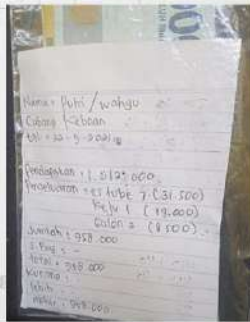 Nama : Putri / wahyu
Cabang Kebaan
tgl : 22-5-2021
Pendapatan : 1.012.000
Pengeluaran : es tube 7 (31.500)
keju 1 (19.000)
Galon 2 (8.500)
Jumlah : 958.000
S.Pay : -
total : 958.000
Kurang :
lebih :